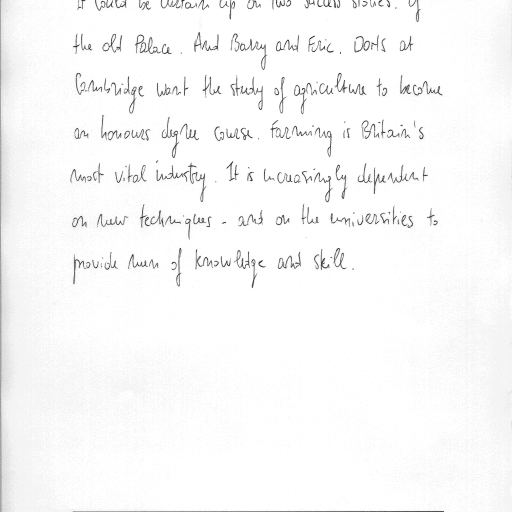 It could be curtain up on two success stories. Of
the old Palace. And Barry and Eric. Dons at
Cambridge want the study of agriculture to become
an honours degree course. Farming is Britain's
most vital industry. It is increasingly dependent
on new techniques - and on the universities to
provide men of knowledge and skill.